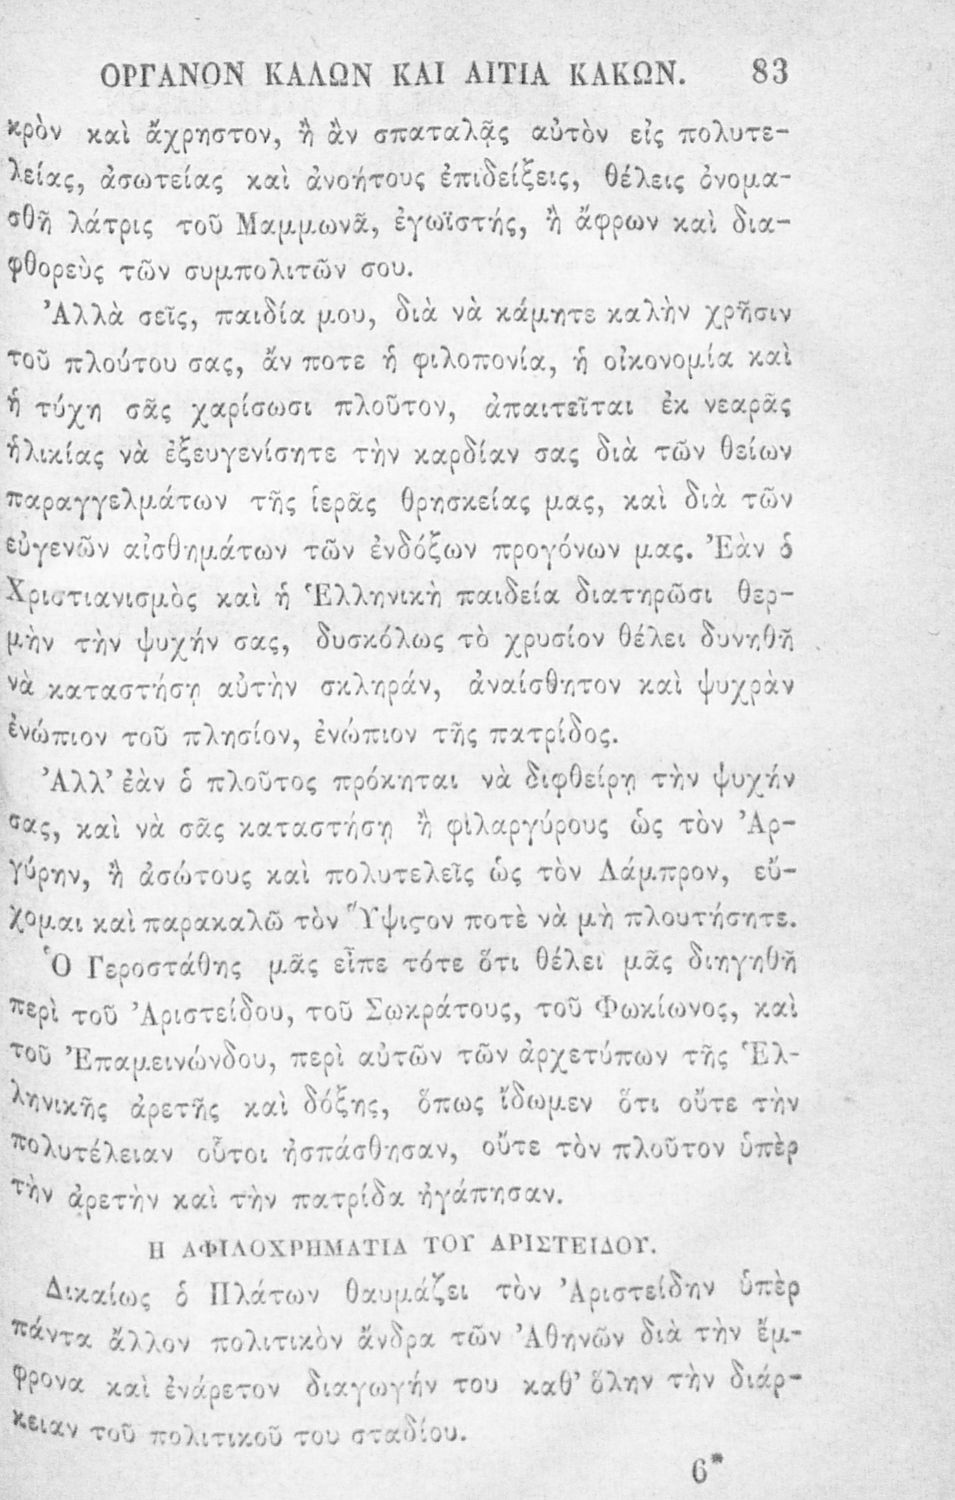 ΟΡΓΑΝΟΝ ΚΑΛΩΝ ΚΑΙ ΑΙΤΙΑ ΚΑΚΩΝ. 83
κρὸν καὶ ἄχρηστον, ἢ ἂν σπαταλᾷς αὐτὸν εἰς πολυτε-
λείας, ἀσωτείας καὶ ἀνοήτους ἐπιδείξεις, θέλεις ὀνομα-
σθῆ λάτρις τοῦ Μαμμωνᾶ, ἐγωϊστής, ἢ ἄφρων καὶ δια-
φθορεὺς τῶν συμπολιτῶν σου.
Ἀλλὰ σεῖς, παιδία μου, διὰ νὰ κάμητε καλὴν χρῆσιν
τοῦ πλούτου σας, ἄν ποτε ἡ φιλοπονία, ἡ οἰκονομία καὶ
ἡ τύχη σᾶς χαρίσωσι πλοῦτον, ἀπαιτεῖται ἐκ νεαρᾶς
ἡλικίας νὰ ἐξευγενίσητε τὴν καρδίαν σας διὰ τῶν θείων
παραγγελμάτων τῆς ἱερᾶς θρησκείας μας, καὶ διὰ τῶν
εὐγενῶν αἰσθημάτων τῶν ἐνδόξων προγόνων μας. Ἐὰν ὁ
Χριστιανισμὸς καὶ ἡ Ἑλληνικὴ παιδεία διατηρῶσι θερ-
μὴν τὴν ψυχήν σας, δυσκόλως τὸ χρυσίον θέλει δυνηθῆ
νὰ καταστήσῃ αὐτὴν σκληράν, ἀναίσθητον καὶ ψυχρὰν
ἐνώπιον τοῦ πλησίον, ἐνώπιον τῆς πατρίδος.
Ἀλλ' ἐὰν ὁ πλοῦτος πρόκηται νὰ διφθείρῃ τὴν ψυχήν
σας, καὶ νὰ σᾶς καταστήσῃ ἢ φιλαργύρους ὡς τὸν Ἀρ-
γύρην, ἢ ἀσώτους καὶ πολυτελεῖς ὡς τὸν Λάμπρον, εὔ-
χομαι καὶ παρακαλῶ τὸν Ὕψιϛον ποτὲ νὰ μὴ πλουτήσητε.
Ὁ Γεροστάθης μᾶς εἶπε τότε ὅτι θέλει μᾶς διηγηθῆ
περὶ τοῦ Ἀριστείδου, τοῦ Σωκράτους, τοῦ Φωκίωνος, καὶ
τοῦ Ἐπαμεινώνδου, περὶ αὐτῶν τῶν ἀρχετύπων τῆς Ἑλ-
ληνικῆς ἀρετῆς καὶ δόξης, ὅπως ἴδωμεν ὅτι οὔτε τὴν
πολυτέλειαν οὗτοι ἠσπάσθησαν, οὔτε τὸν πλοῦτον ὑπὲρ
τὴν ἀρετὴν καὶ τὴν πατρίδα ἠγάπησαν.
Η ΑΦΙΛΟΧΡΗΜΑΤΙΑ ΤΟΥ ΑΡΙΣΤΕΙΔΟΥ.
Δικαίως ὁ Πλάτων θαυμάζει τὸν Ἀριστείδην ὑπὲρ
πάντα ἄλλον πολιτικὸν ἄνδρα τῶν Ἀθηνῶν διὰ τὴν ἔμ-
φρονα καὶ ἐνάρετον διαγωγήν του καθ' ὅλην τὴν διάρ-
κειαν τοῦ πολιτικοῦ του σταδίου.
6*